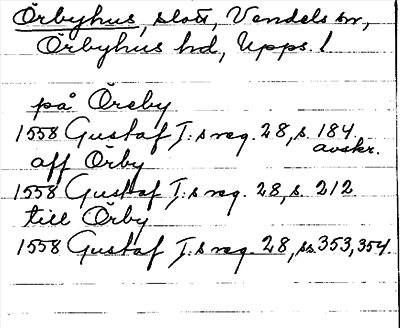 Örbyhus, slott, Vendels sn,
Örbyhus hd, Upps. l
på Öreby
1558 Gustaf I:s reg. 28, s. 184.
avskr.
aff Örby
1558 Gustaf I:s reg. 28, s. 212
till Örby
1558 Gustaf I:s reg. 28, ss. 353, 354.